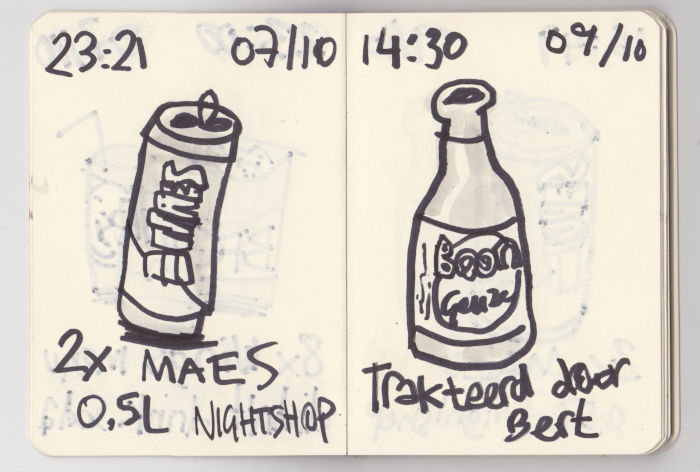 23:21 07/10
MAES
2x MAES
0,5L NIGHTSHOP
14:30 09/10
Boon
Geuze
Trakteerd door
Bert